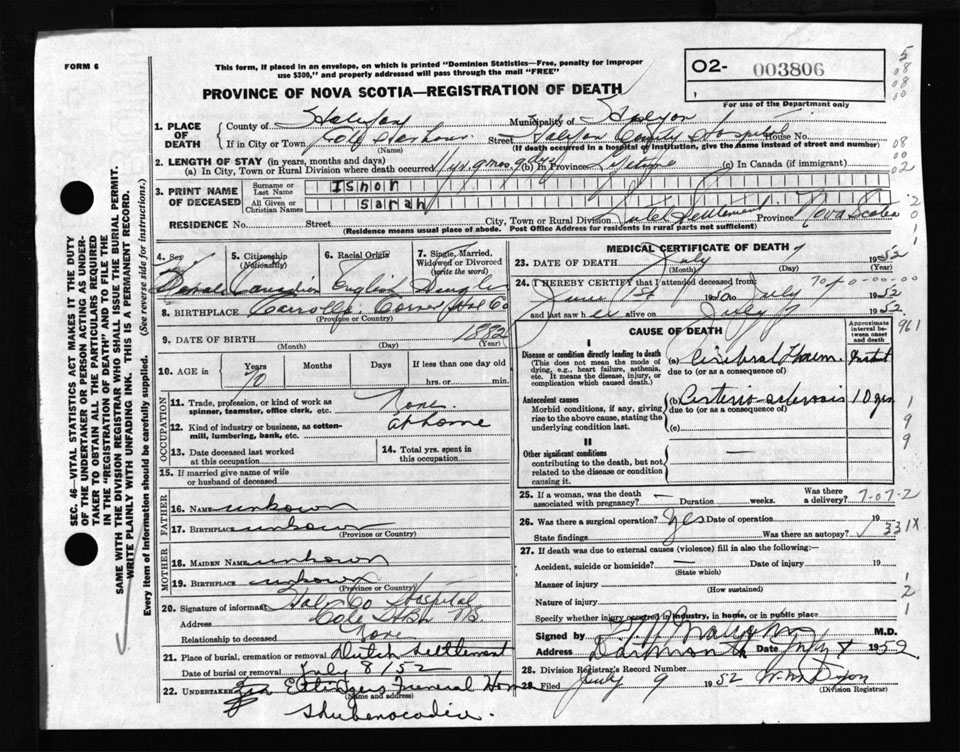 FORM 6
This form, if placed in an envelope, on which is printed "Dominion Statistics—Free, penalty for improper
use $300," and properly addressed will pass through the mail "FREE"
O2- 003806
For use of the Department only
PROVINCE OF NOVA SCOTIA—REGISTRATION OF DEATH
1. PLACE OF DEATH
County of Halifax Municipality of
If in City or Town Street Halifax County Hospital House No.
(Name) (If death occurred in a hospital or institution, give the name instead of street and number)
2. LENGTH OF STAY (in years, months and days)
(a) In City, Town or Rural Division where death occurred 11 yrs. 9 mos. 9 days (b) In Province Lifetime (c) In Canada (if immigrant)
3. PRINT NAME OF DECEASED
Surname or Last Name Isnor
All Given or Christian Names Sarah
RESIDENCE No. Street City, Town or Rural Division Settlement Province Nova Scotia
(Residence means usual place of abode. Post Office Address for residents in rural parts not sufficient)
4. Sex Female
5. Citizenship (Nationality) Canadian
6. Racial Origin English
7. Single, Married, Widowed or Divorced (write the word) Single
8. BIRTHPLACE Carrolls Corner Hal Co
(Province or Country)
9. DATE OF BIRTH 1882
(Month) (Day) (Year)
10. AGE in Years 70 Months Days If less than one day old
hrs. or min.
OCCUPATION
11. Trade, profession, or kind of work as spinner, teamster, office clerk, etc. None
12. Kind of industry or business, as cotton-mill, lumbering, bank, etc. at home
13. Date deceased last worked at this occupation
14. Total yrs. spent in this occupation
15. If married give name of wife or husband of deceased
FATHER
16. NAME unknown
17. BIRTHPLACE unknown
(Province or Country)
MOTHER
18. MAIDEN NAME unknown
19. BIRTHPLACE unknown
(Province or Country)
20. Signature of informant Hal Co Hospital
Address Cole Hbr NS
Relationship to deceased None
21. Place of burial, cremation or removal Dutch Settlement
Date of burial or removal July 8/52
22. UNDERTAKER Ettingers Funeral Home
(Name and address)
Shubenacadie.
MEDICAL CERTIFICATE OF DEATH
23. DATE OF DEATH July 7 1952
(Month) (Day) (Year)
24. I HEREBY CERTIFY that I attended deceased from:
June 1st to July 1952
and last saw her alive on July 1952
CAUSE OF DEATH
Approximate interval between onset and death
I
Disease or condition directly leading to death
(This does not mean the mode of dying, e.g., heart failure, asthenia, etc. It means the disease, injury, or complication which caused death.)
(a) Cerebral Haem. Instant
due to (or as a consequence of)
Antecedent causes
Morbid conditions, if any, giving rise to the above cause, stating the underlying condition last.
(b) Arterio-sclerosis 10 yrs
due to (or as a consequence of)
(c)
II
Other significant conditions
contributing to the death, but not related to the disease or condition causing it.
25. If a woman, was the death associated with pregnancy? Duration weeks. Was there a delivery? 7-07-2
26. Was there a surgical operation? Date of operation 19
State findings Was there an autopsy? 331X
27. If death was due to external causes (violence) fill in also the following:—
Accident, suicide or homicide? Date of injury 19
(State which)
Manner of injury
(How sustained)
Nature of injury
Specify whether injury occurred in industry, in home, or in public place
Signed by M.D.
Address Dartmouth Date July 8 1952
28. Division Registrar's Record Number
29. Filed July 9 1952 W. M. Dixon
(Division Registrar)
SEC. 46—VITAL STATISTICS ACT MAKES IT THE DUTY
OF THE UNDERTAKER OR PERSON ACTING AS UNDERTAKER TO OBTAIN ALL THE PARTICULARS REQUIRED
IN THE "REGISTRATION OF DEATH" AND TO FILE THE
SAME WITH THE DIVISION REGISTRAR WHO SHALL ISSUE THE BURIAL PERMIT.
WRITE PLAINLY WITH UNFADING INK. THIS IS A PERMANENT RECORD.
Every item of information should be carefully supplied. (See reverse side for instructions.)